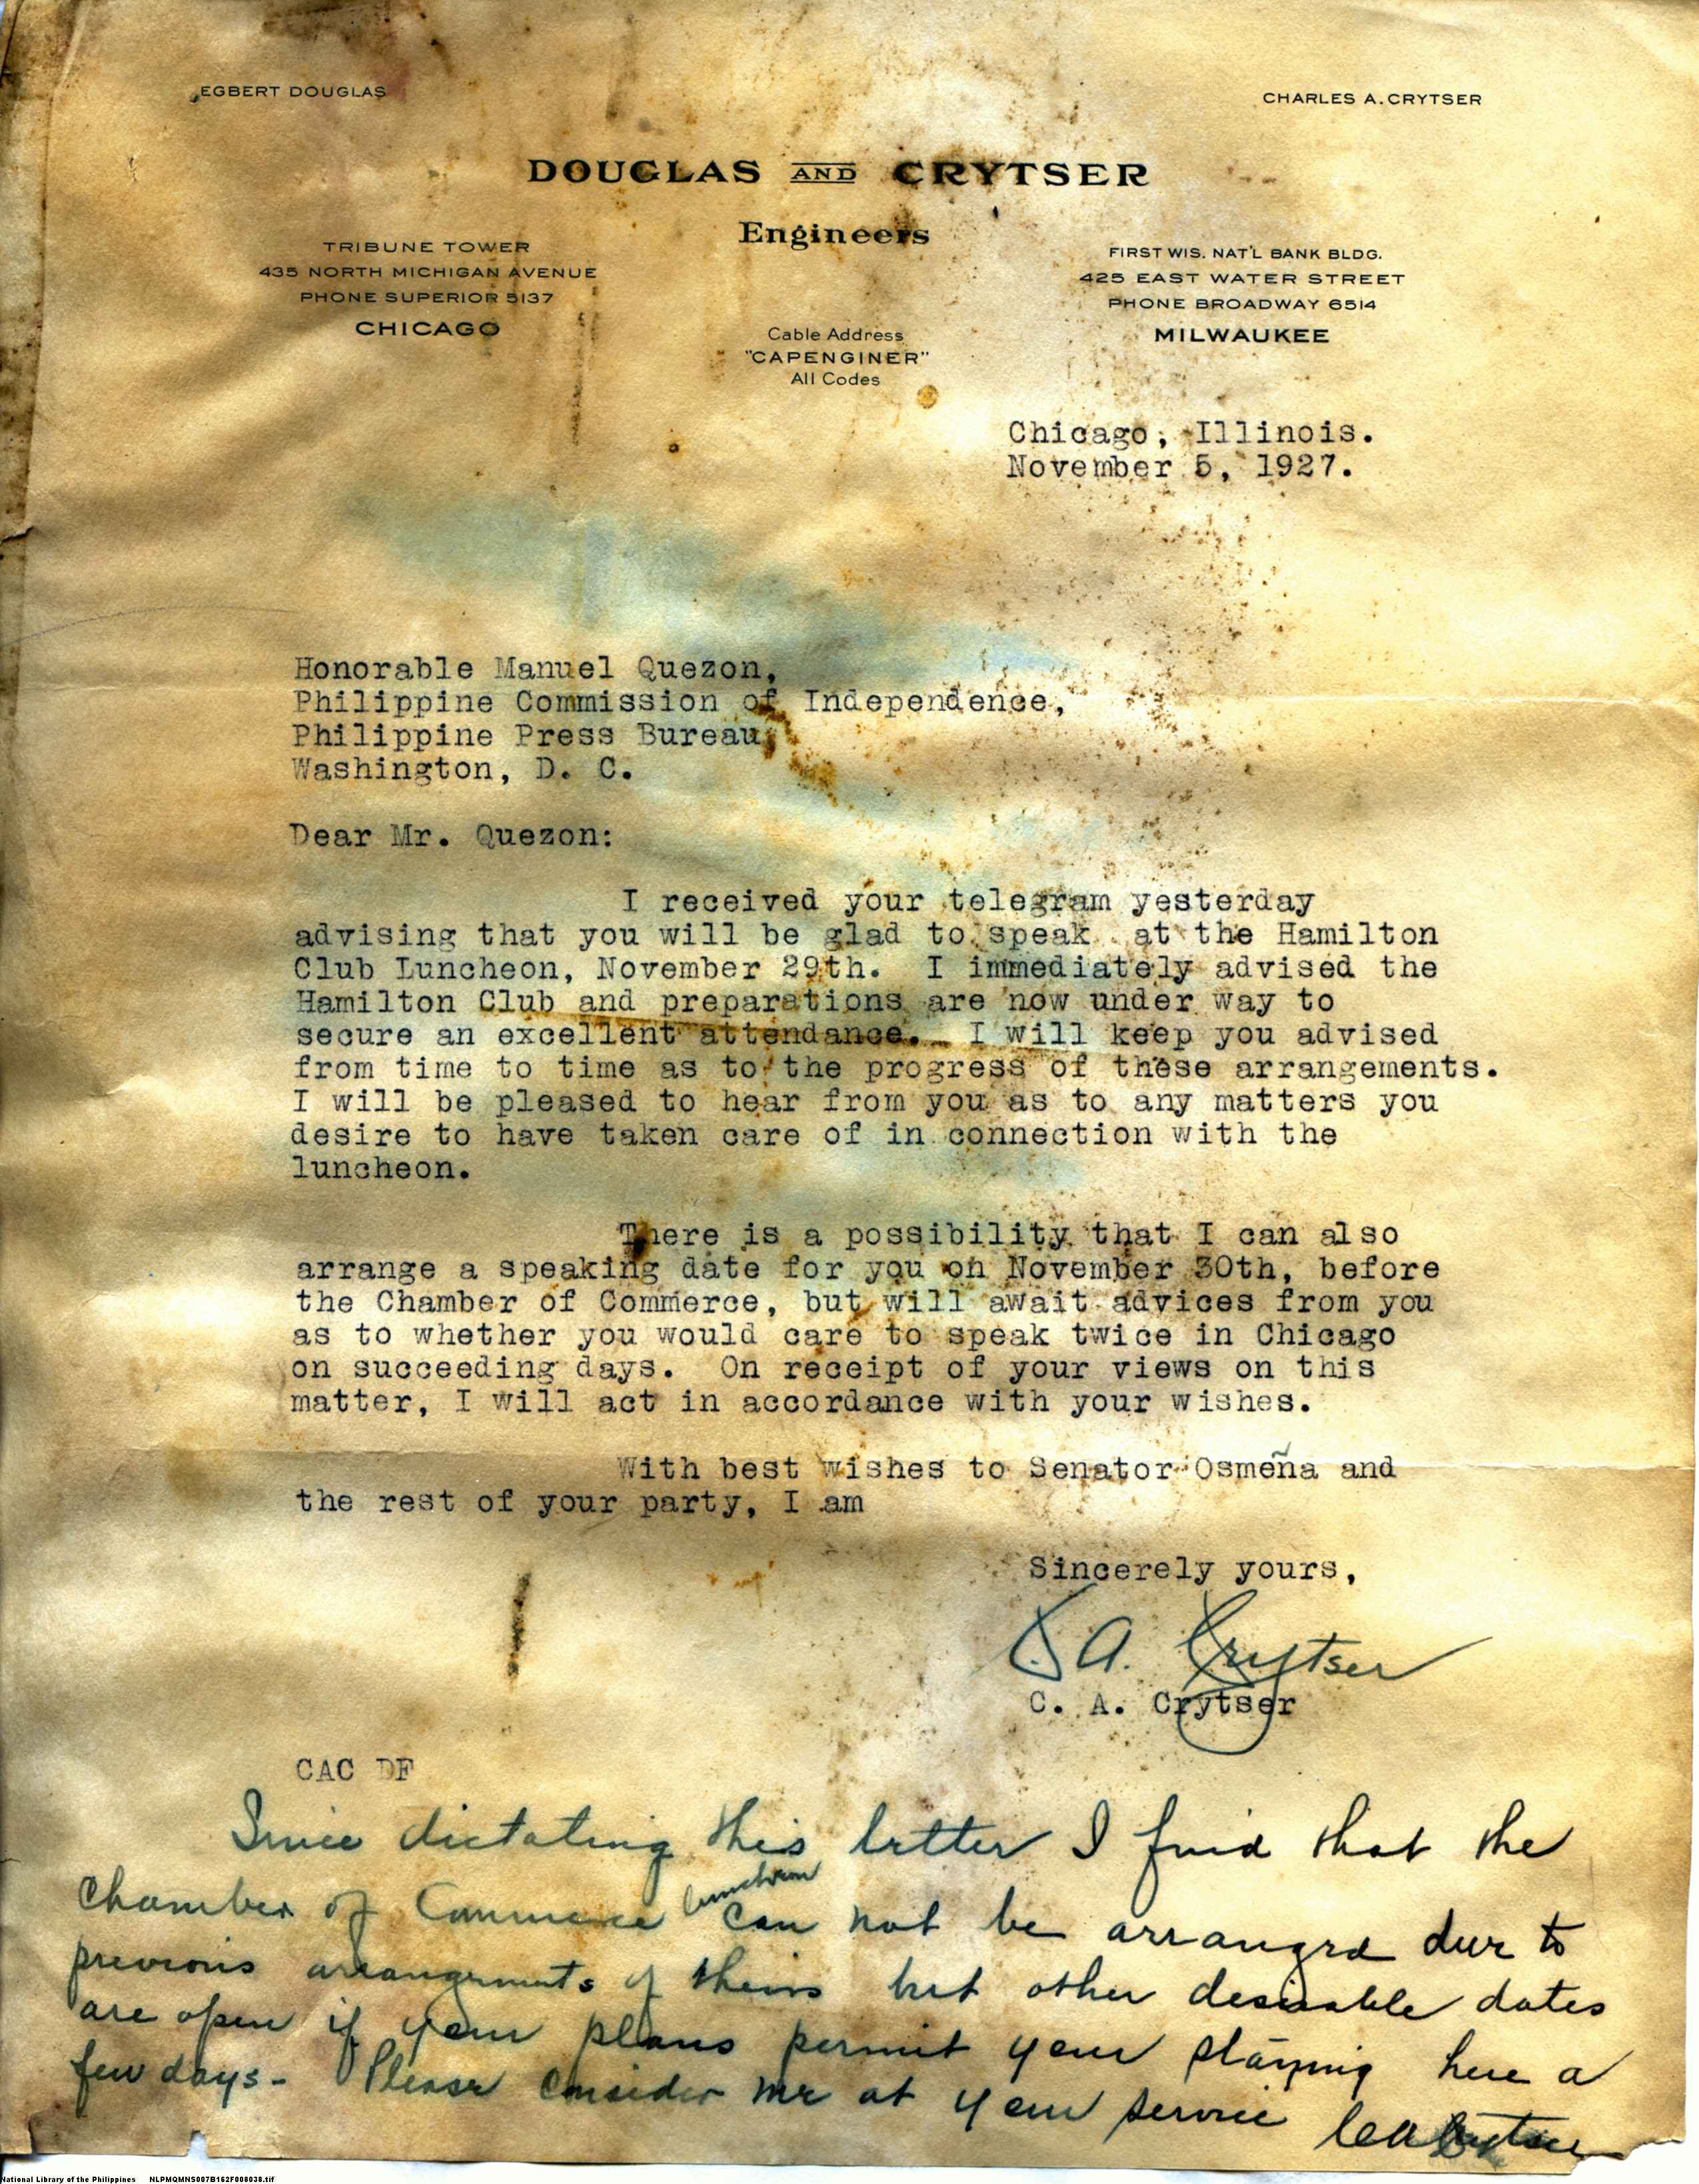 EGBERT DOUGLAS
CHARLES A. CRYTSER
DOUGLAS AND CRYTSER
Engineers
TRIBUNE TOWER
435 NORTH MICHIGAN AVENUE
PHONE SUPERIOR 5137
CHICAGO
Cable Address
"CAPENGINER"
All Codes
FIRST WIS. NAT'L BANK BLDG.
425 EAST WATER STREET
PHONE BROADWAY 6514
MILWAUKEE
Chicago, Illinois.
November 5, 1927.
Honorable Manuel Quezon,
Philippine Commission of Independence,
Philippine Press Bureau,
Washington, D. C.
Dear Mr. Quezon:
I received your telegram yesterday
advising that you will be glad to speak at the Hamilton
Club Luncheon, November 29th. I immediately advised the
Hamilton Club and preparations are now under way to
secure an excellent attendance. I will keep you advised
from time to time as to the progress of these arrangements.
I will be pleased to hear from you as to any matters you
desire to have taken care of in connection with the
luncheon.
There is a possibility that I can also
arrange a speaking date for you on November 30th, before
the Chamber of Commerce, but will await advices from you
as to whether you would care to speak twice in Chicago
on succeeding days. On receipt of your views on this
matter, I will act in accordance with your wishes.
With best wishes to Senator Osmeña and
the rest of your party, I am
Sincerely yours,
C A. Crytser
C. A. Crytser
CAC DF
Since dictating this letter I find that the
Chamber of Commerce luncheon can not be arranged due to
previous arrangements of theirs but other desirable dates
are open if your plans permit your staying here a
few days - Please consider me at your service CA Crytser
National Library of the Philippines NLPMQMNS007B162F008038.tif